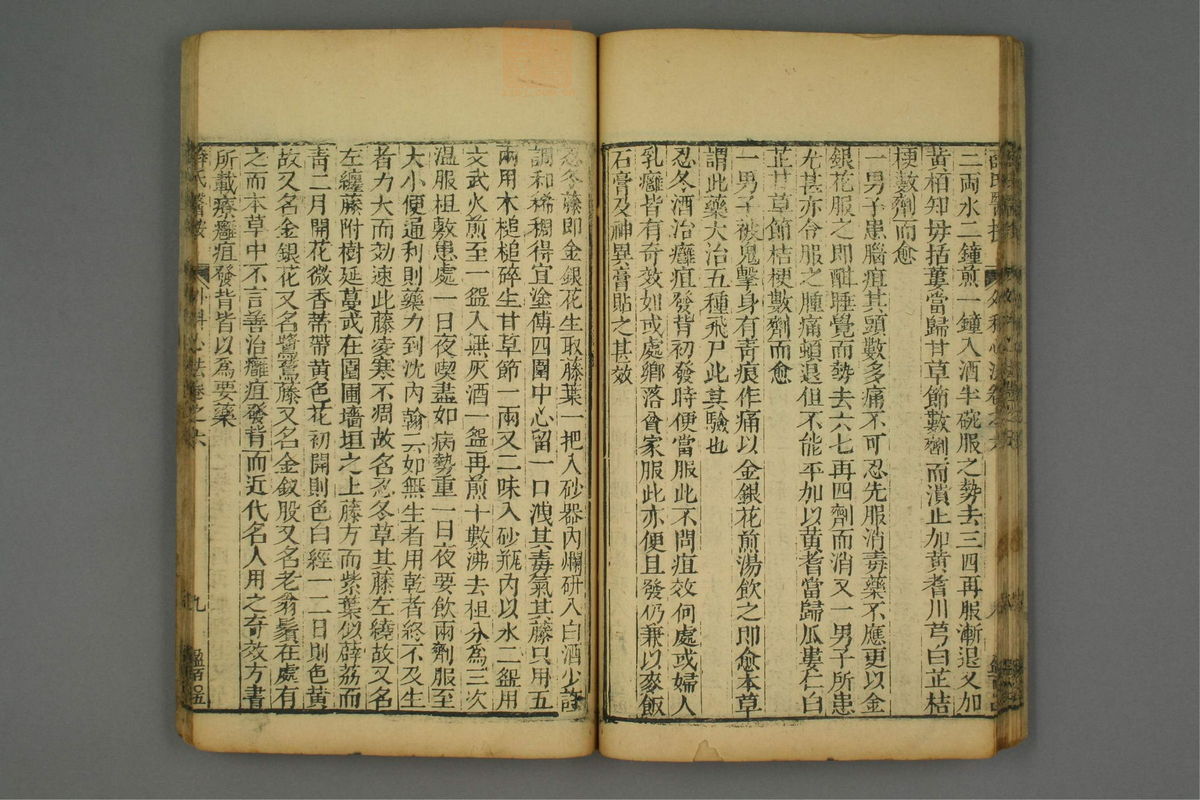 二両水二鐘煎一鐘入酒半碗服之勢去三四再服漸退又加
黄栢知母括蔞當歸甘草節數劑而潰止加黄耆川芎白芷桔
梗數劑而愈
一男子患腦疽其頭數多痛不可忍先服消毒藥不應更以金
銀花服之即酣睡覺而勢去六七再四劑而消又一男子所患
尤甚亦令服之腫痛頓退但不能平加以黄耆當歸瓜蔞仁白
芷甘草節桔梗數劑而愈
一男子被鬼擊身有青痕作痛以金銀花煎湯飲之即愈本草
謂此藥大治五種飛尸此其驗也
忍冬酒治癰疽發背初發時便當服此不問疽效何處或婦人
乳癰皆有奇效如或處鄉落貧家服此亦便且發仍兼以麥飯
石膏及神異膏貼之甚效
忍冬藤即金銀花生取藤葉一把入砂器內爛研入白酒少許
調和稀稠得宜塗傅四圍中心留一口洩其毒氣其藤只用五
兩用木槌槌碎生甘草節一兩又二味入砂瓶内以水二盌用
文武火煎至一盌入無灰酒一盌再煎十數沸去柤分為三次
温服柤敷患處一日夜喫盡如病勢重一日夜要飲兩劑服至
大小便通利則藥力到沈内翰云如無生者用乾者終不及生
者力大而效速此藤凌寒不凋故名忍冬草其藤左繞故又名
左纏藤附樹延蔓或在園圃墻垣之上藤方而紫葉似薜荔而
青二月開花微香蒂帶黄色花初開則色白經一二日則色黄
故又名金銀花又名鷺鷥藤又名金釵股又名老翁鬚在處有
之而本草中不言善治癰疽發背而近代名人用之奇效方書
所載療癰疽發背皆以為要藥
薛氏醫按 外科心法卷之六 九